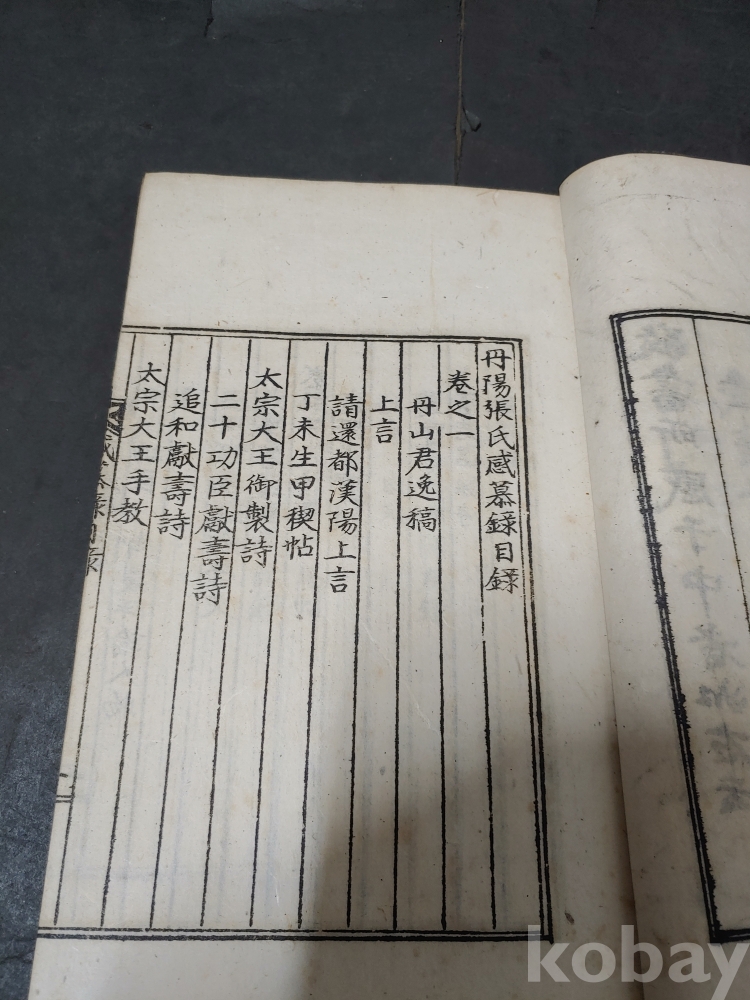 丹陽張氏感慕錄目錄
卷之一
丹山君逸稿
上言
請還都漢陽上言
丁未生甲稧帖
太宗大王御製詩
二十功臣獻壽詩
追和獻壽詩
太宗大王手教
感慕錄目錄
kobay